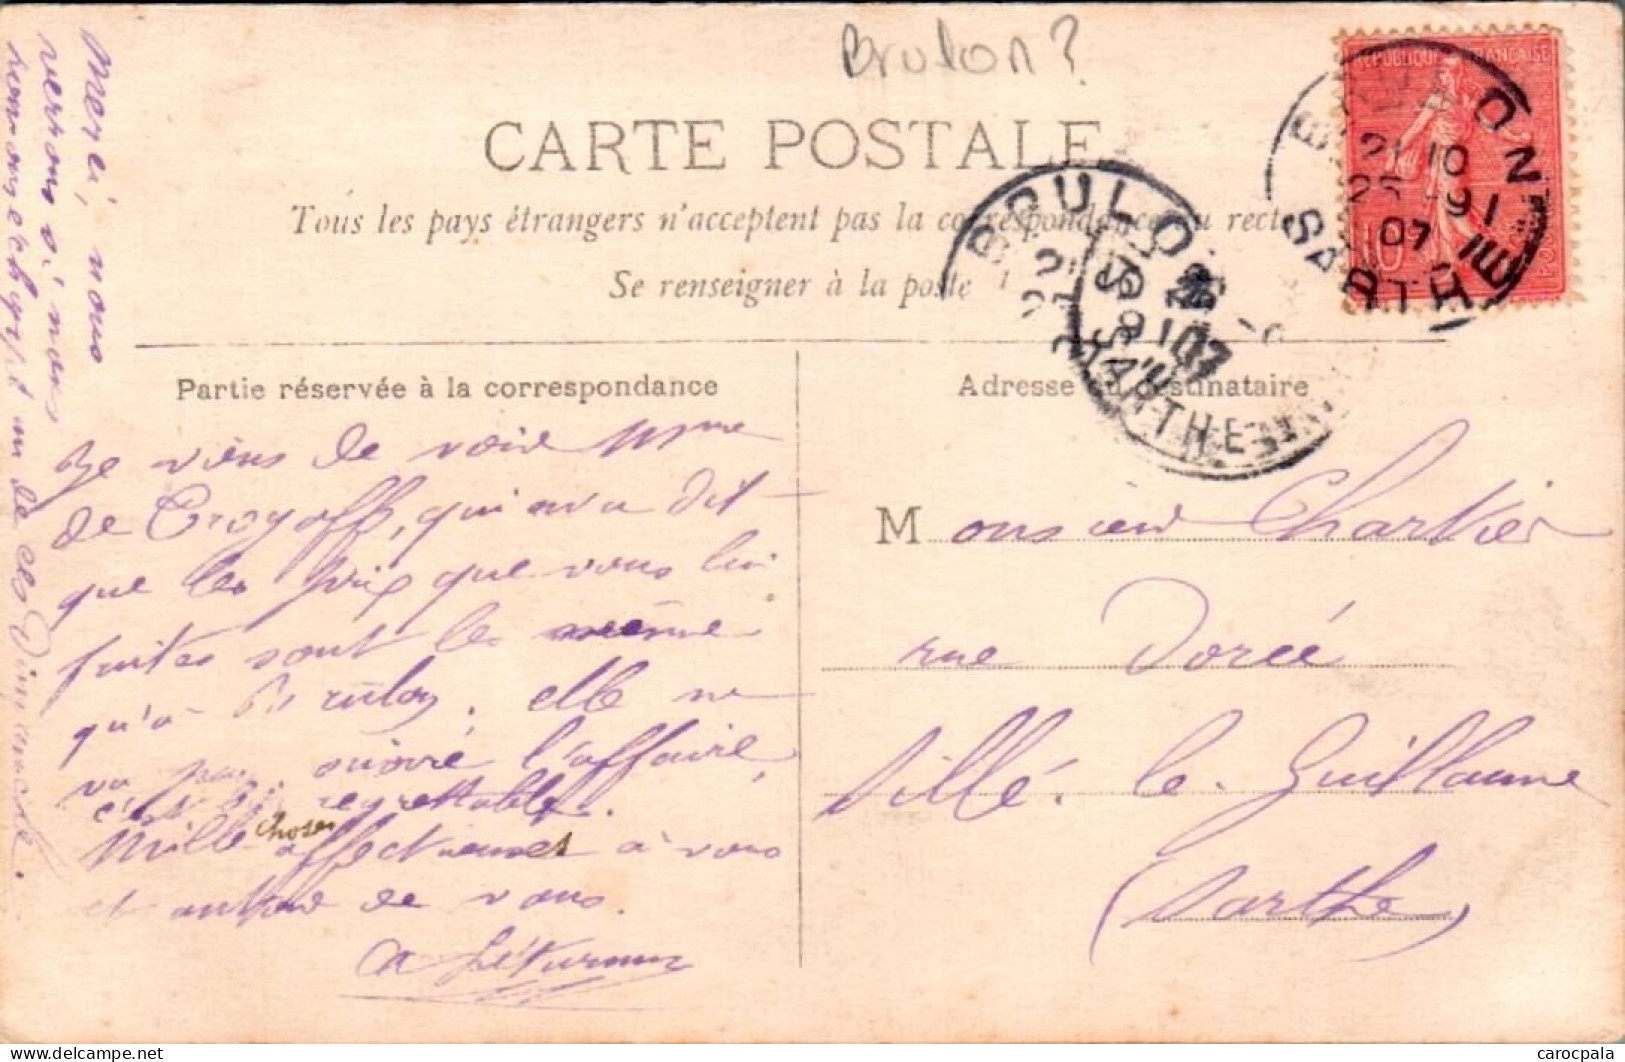 Brulon?
CARTE POSTALE
Tous les pays étrangers n'acceptent pas la correspondance au recto
Se renseigner à la poste
RÉPUBLIQUE FRANÇAISE
10
BRULON
21 10
25 -9
07
SARTHE
BRULON
21
25 -9
07
SARTHE
Partie réservée à la correspondance
Adresse du destinataire
Merci, nous
verrons si nous
un de ces Dimanche.
Je viens de voir Mme
de Croyoff, qui m'a dit
que les prix que vous lui
faites sont les même
qu'à Brulon. elle ne
va pas suivre l'affaire,
c'est regrettable.
Mille choses affectueuses à vous
et autour de vous.
Monsieur Chartier
rue Dorée
Sillé-le-Guillaume
(Sarthe)
carocpala